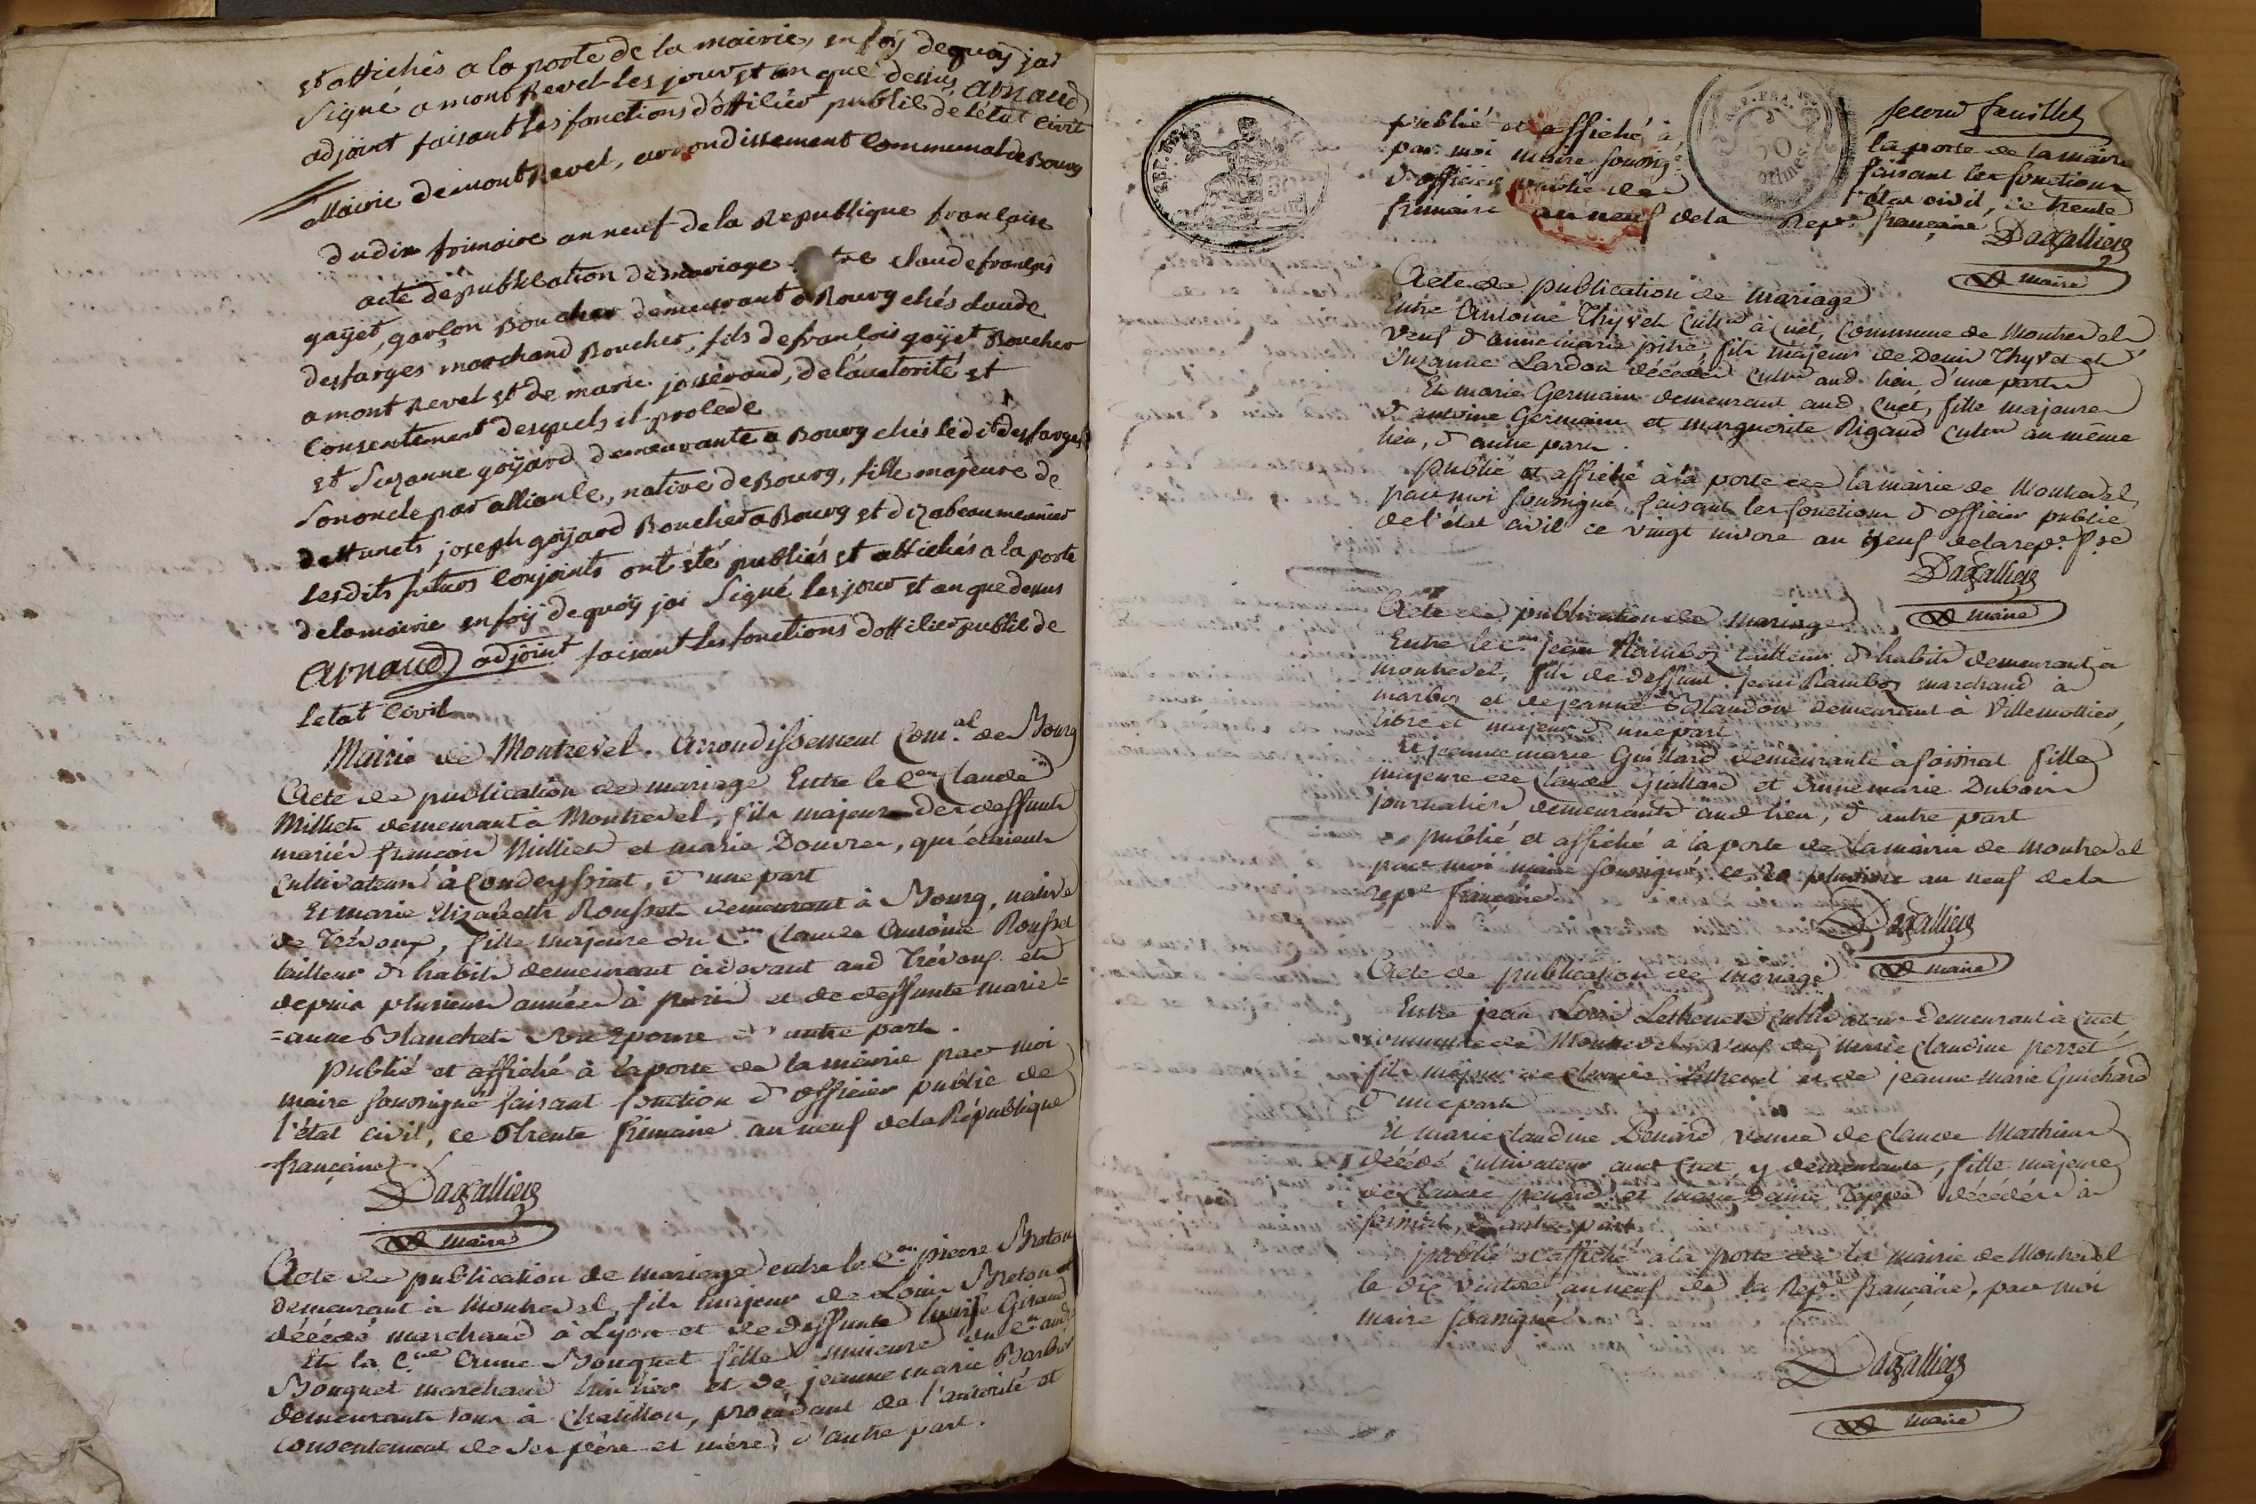 et affichés a la porte de la mairie, en foy dequoy jai
signé a mont Revel les jour et an que dessus Arnaud
adjoint faisant les fonctions d'officier public de l'état civil
Mairie de mont Revel, arrondissement Communal de Bourg
du dix frimaire an neuf de la Republique francaise
acte de publication de mariage entre claude francois
gayet, garcon Boucher demeurant a Bourg chés claude
desfarges marchand Boucher, fils de francois gayet Boucher
a mont Revel et de marie josserand, de l'autorité et
Consentement desquels il procede
et Suzanne goyard demeurante a Bourg chés le dit desfarges
son oncle par alliance, native de Bourg, fille majeure de
deffunts joseph goyard Boucher a Bourg et d'izabeau meunier
Lesdits futurs Conjoints ont été publiés et affichés a la porte
de la mairie en foy dequoy jai signé les jour et an que dessus
Arnaud adjoint faisant les fonctions d'officier public de
letat Civil
Mairie de Montrevel. Arrondissement Com.al de Bourg
Acte de publication de mariage Entre le C.en Claude
Milliet demeurant à Montrevel, fils majeur de deffunts
mariés françois Milliet et marie Douvre, qui étaient
cultivateurs à Condeyssiat, d'une part
Et marie Elizabeth Rousset demeurant à Bourg, native
de Trévoux, fille majeure du C.en Claude Antoine Rousset
tailleur d'habits demeurant cidevant aud Trévoux et
depuis plusieurs années à paris et de deffunte marie=
=anne Blanchet son Epouse d'autre part.
Publié et affiché à la porte de la mairie par moi
maire soussigné faisant fonction d'officier public de
l'état civil, ce trente frimaire an neuf de la République
française
Dagallier
maire
Acte de publication de mariage entre le C.en pierre Breton
demeurant à Montrevel, fils majeur de Louis Breton
décédé marchand à Lyon et de deffunte Louise Giraud
Et la C.ne Anne Bouquet fille mineure du C.en
Bouquet marchand et de jeanne marie Barbier
demeurants tous à Chatillon, procédant de l'autorité et
consentement de ses père et mère, d'autre part.
second feuillet
publié et affiché à la porte de la mairie
par moi maire soussigné faisant les fonctions
d'officier public de l'état civil, ce trente
frimaire an neuf de la Rep.e française
REP. FRA.
50
Dagallier
maire
Acte de publication de mariage
Entre Antoine Thyvet cult.r à Cuet, Commune de Montrevel
veuf d'anne marie pitre, fils majeur de Denis Thyvet et
Suzanne Lardon décédés cult.rs aud. lieu d'une part
Et marie Germain demeurant aud. Cuet, fille majeure
d'antoine Germain et marguerite Rigaud cult.rs au même
lieu, d'autre part.
Publié et affiché à la porte de la mairie de Montrevel
par moi soussigné, faisant les fonctions d'officier public
de l'état civil ce vingt nivose an neuf de la rep.e f.se
Dagallier
maire
Acte de publication de mariage
Entre le C.en jean Ramboz tailleur d'habits demeurant à
montrevel, fils de deffunt jean Ramboz marchand à
marboz et de jeanne demeurant à Villemottier,
libre et majeur d'une part
Et jeanne marie Guillard demeurante à foissiat fille
majeure de Claude Guillard et Anne marie Dubois
journaliers demeurants aud lieu, d'autre part
publié et affiché à la porte de la mairie de montrevel
par moi maire soussigné, ce 20 pluviose an neuf de la
rep.e française
Dagallier
maire
Acte de publication de mariage
Entre jean Louis Lethenet cultivateur demeurant à Cuet
commune de Montrevel, veuf de marie Claudine perret
fils majeur de Claude Lethenet et de jeanne marie Guichard
d'une part
Et marie Claudine Penard veuve de Claude Mathieu
décédé cultivateur aud Cuet, y demeurante, fille majeure
de Claude penard et marie Teppe décédés à
foissiat, d'autre part
publié et affiché à la porte de la mairie de Montrevel
le dix ventose an neuf de la Rep.e française, par moi
maire soussigné
Dagallier
maire